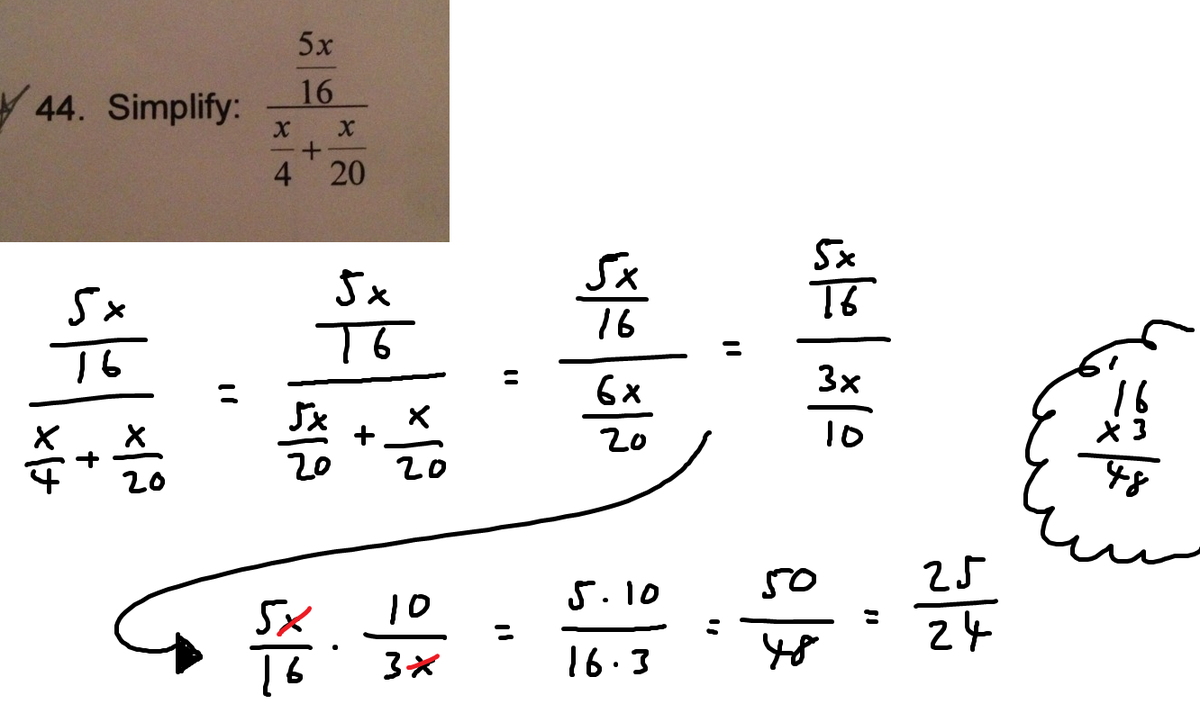 44. Simplify: (5x/16)/(x/4 + x/20)
(5x/16)/(x/4 + x/20) = (5x/16)/(5x/20 + x/20) = (5x/16)/(6x/20) = (5x/16)/(3x/10)
1
16
x 3
48
5x/16 · 10/3x = 5·10/16·3 = 50/48 = 25/24